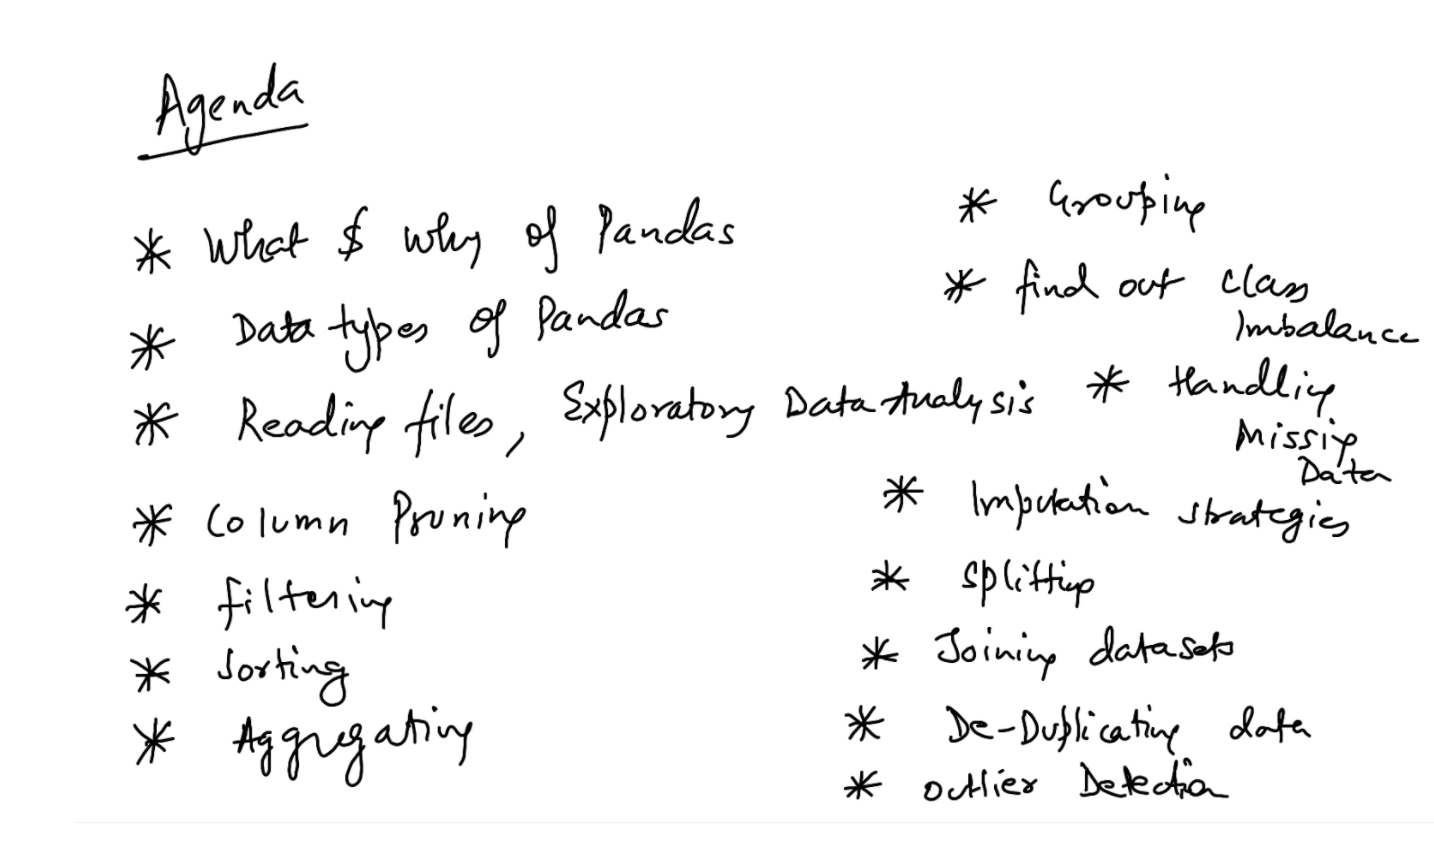 Agenda
* What $ why of Pandas
* Data types of Pandas
* Reading files, Exploratory Data Analysis
* Column Pruning
* filtering
* Sorting
* Aggregating
* Grouping
* find out class
Imbalance
* Handling
Missing
Data
* Imputation strategies
* Splitting
* Joining datasets
* De-Duplicating data
* Outlier Detection